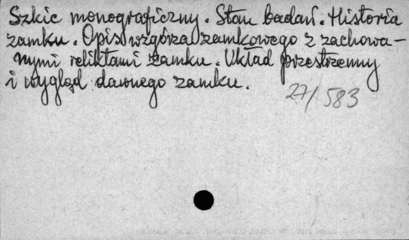 Szkic monograficzny. Stan badań. Historia
zamku. Opis wzgórza zamkowego z zachowa-
nymi reliktami zamku. Układ przestrzenny
i wygląd dawnego zamku.
27/583